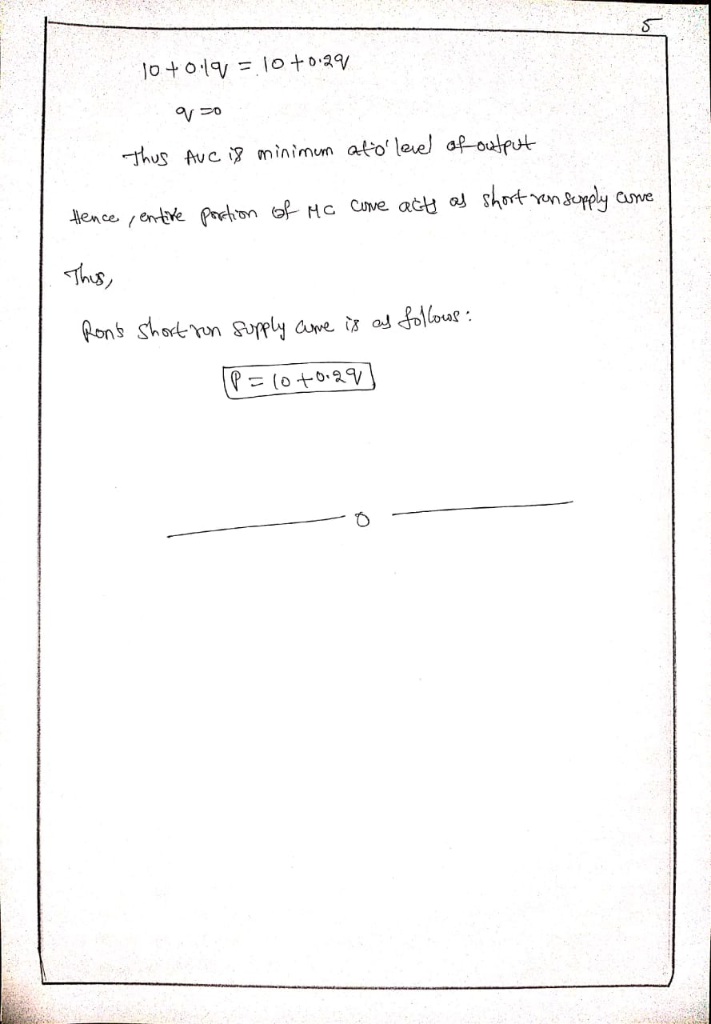 5
10+0.1q = 10+0.2q
q=0
Thus AVC is minimum at '0' level of output
Hence, entire portion of MC curve acts as short run supply curve
Thus,
Ron's short run supply curve is as follows:
P = 10+0.2q
0